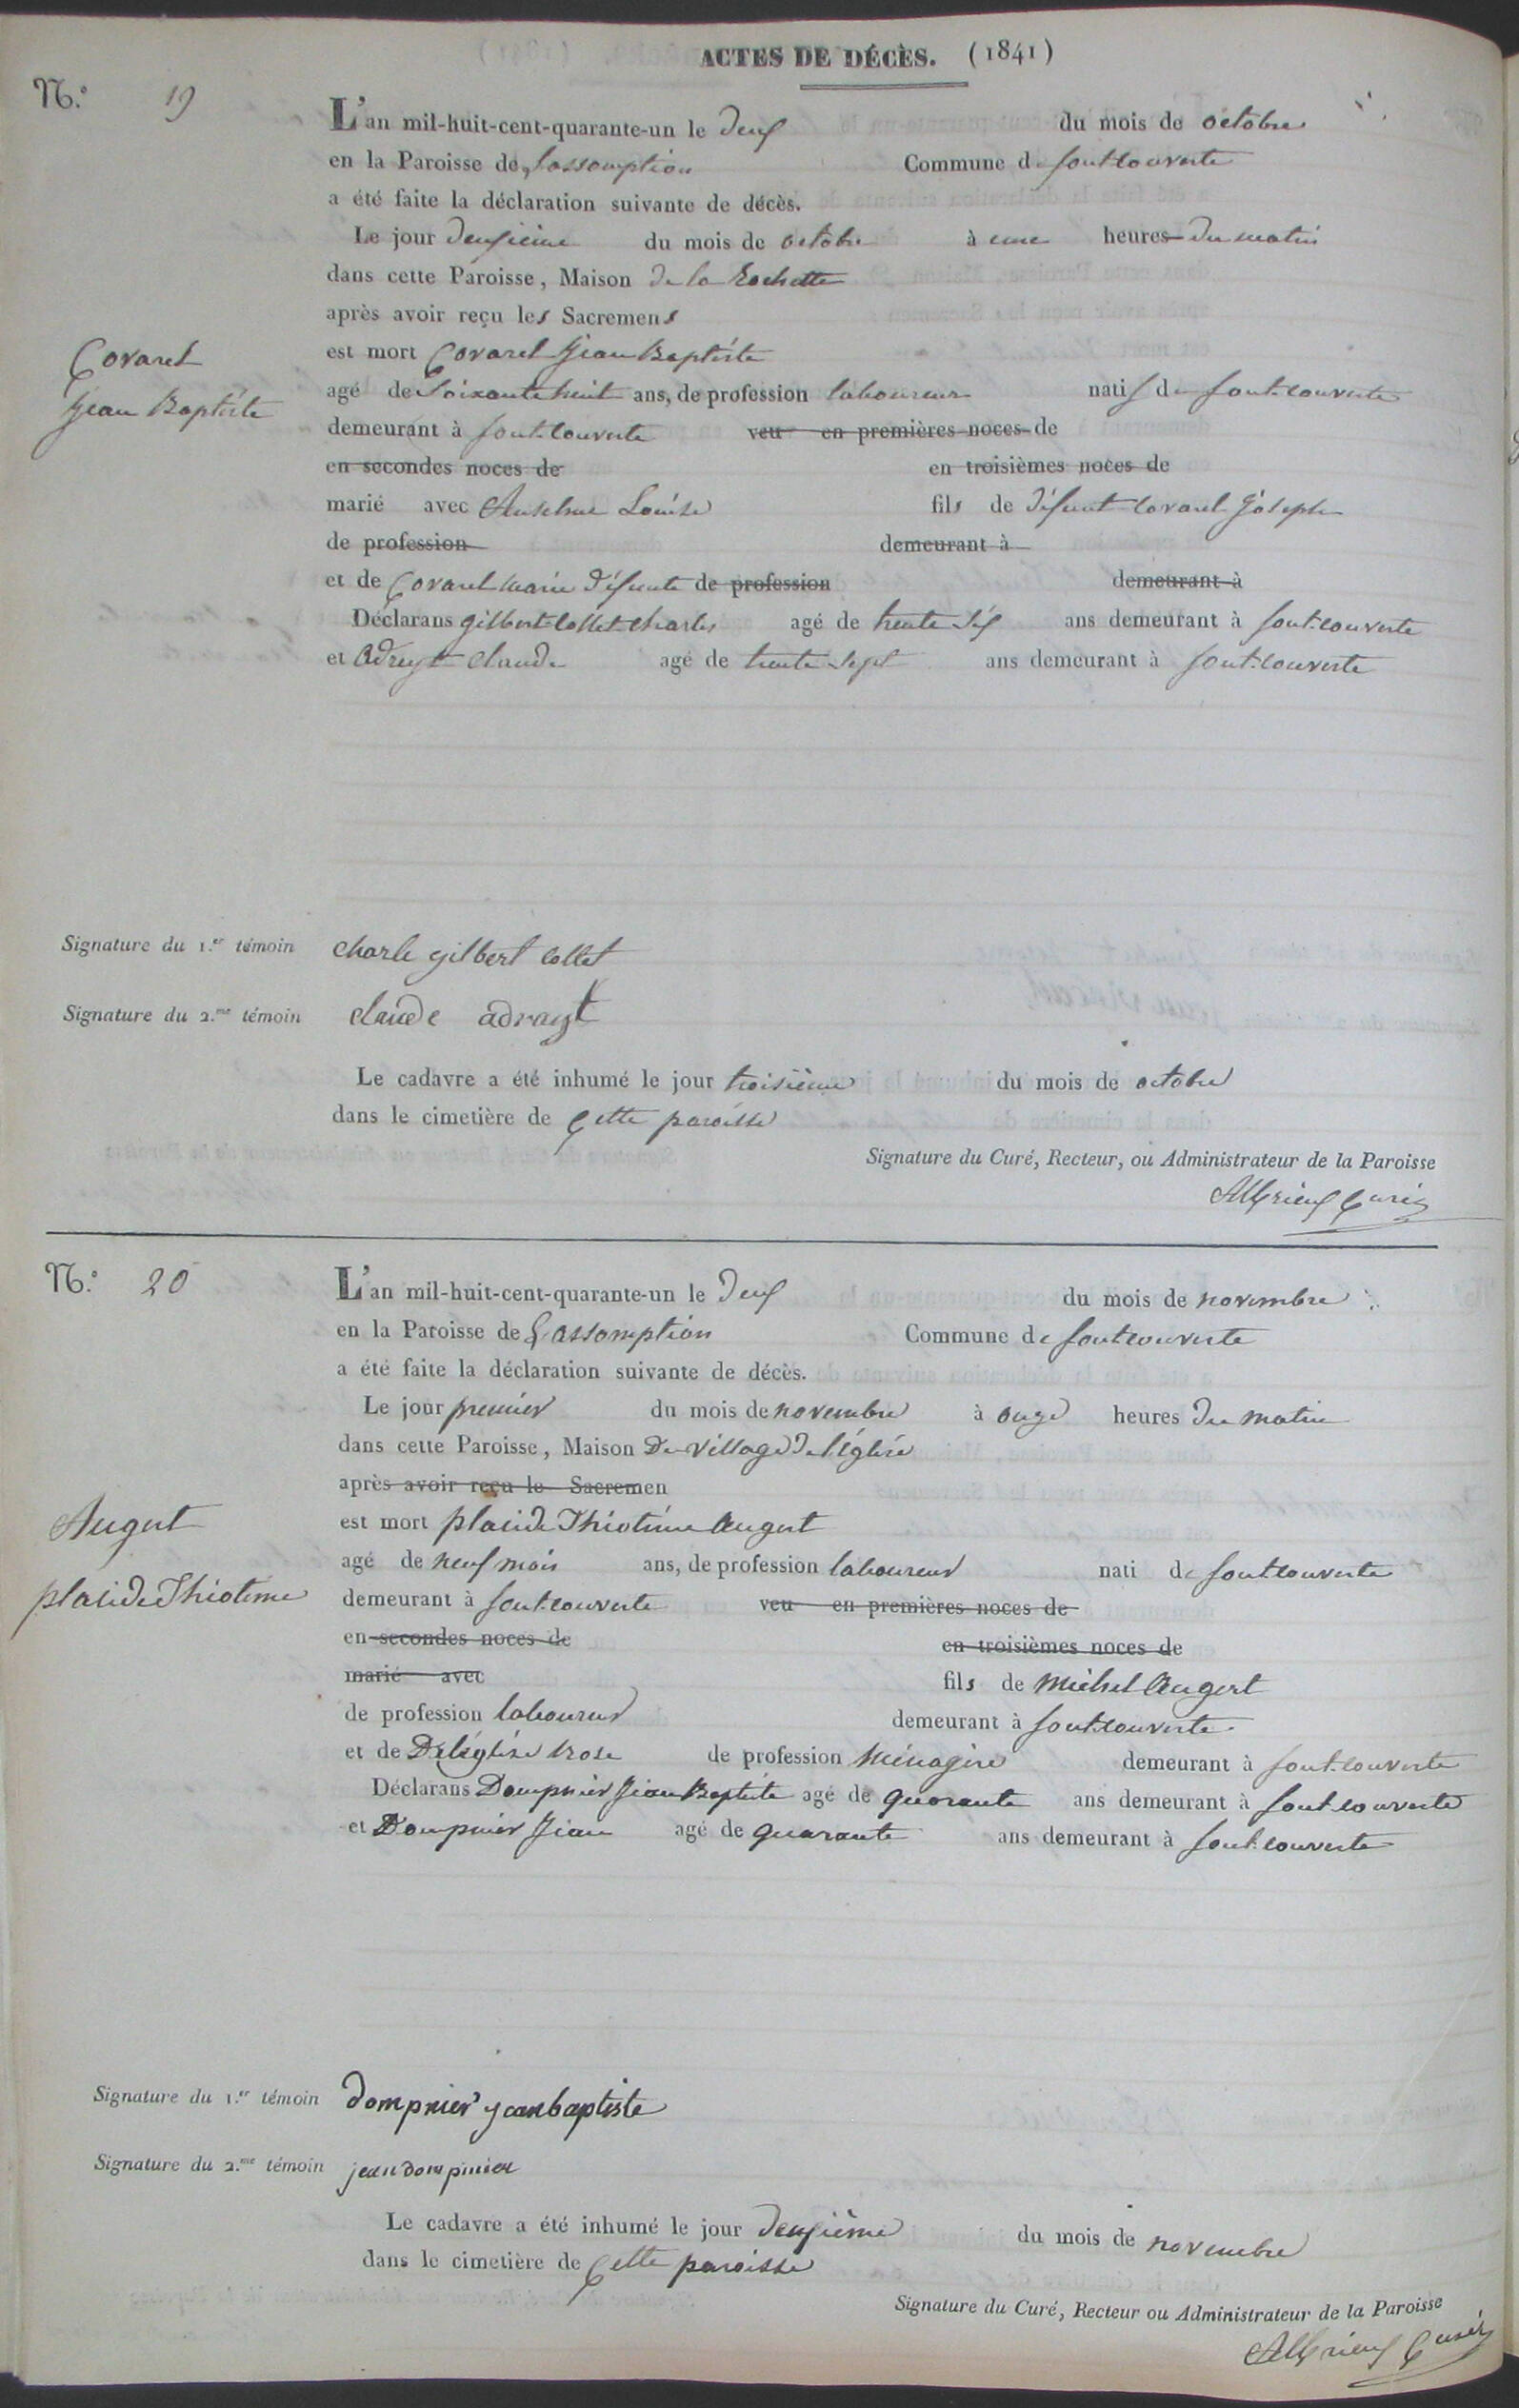 ACTES DE DÉCÈS. (1841)
N.º 19
L'an mil-huit-cent-quarante-un le deux du mois de octobre
en la Paroisse de l'assomption Commune de fontcouverte
a été faite la déclaration suivante de décès.
Le jour deuxieme du mois de octobre à une heures du matin
dans cette Paroisse, Maison de la Rochette
après avoir reçu les Sacremens
Covarel
Jean Baptiste
est mort Covarel Jean Baptiste
agé de Soixante huit ans, de profession laboureur natif de fontcouverte
demeurant à fontcouverte veu en premières noces de
en secondes noces de en troisièmes noces de
marié avec Anselme Louise fils de défunt Covarel Joseph
de profession demeurant à
et de Covarel marie défunte de profession demeurant à
Déclarans gilbert collet charles agé de trente six ans demeurant à fontcouverte
et Adreyt claude agé de trente sept ans demeurant à fontcouverte
Signature du 1.er témoin charle gilbert collet
Signature du 2.me témoin claude adrayt
Le cadavre a été inhumé le jour troisième du mois de octobre
dans le cimetière de Cette paroisse
Signature du Curé, Recteur, ou Administrateur de la Paroisse
Curé
N.º 20
L'an mil-huit-cent-quarante-un le deux du mois de novembre
en la Paroisse de L'assomption Commune de fontcouverte
a été faite la déclaration suivante de décès.
Le jour premier du mois de novembre à onze heures du matin
dans cette Paroisse, Maison Du village de l'église
après avoir reçu le Sacremen
Augert
placide Thiotime
est mort placide Thiotime Augert
agé de neuf mois ans, de profession laboureur nati de fontcouverte
demeurant à fontcouverte veu en premières noces de
en secondes noces de en troisièmes noces de
marié avec fils de Michel Augert
de profession laboureur demeurant à fontcouverte
et de Deléglise Rose de profession Ménagère demeurant à fontcouverte
Déclarans Dompnier Jean Baptiste agé de quarante ans demeurant à fontcouverte
et Dompnier Jean agé de quarante ans demeurant à fontcouverte
Signature du 1.er témoin dompnier jeanbaptiste
Signature du 2.me témoin jean dompnier
Le cadavre a été inhumé le jour deuxième du mois de novembre
dans le cimetière de Cette paroisse
Signature du Curé, Recteur ou Administrateur de la Paroisse
Curé